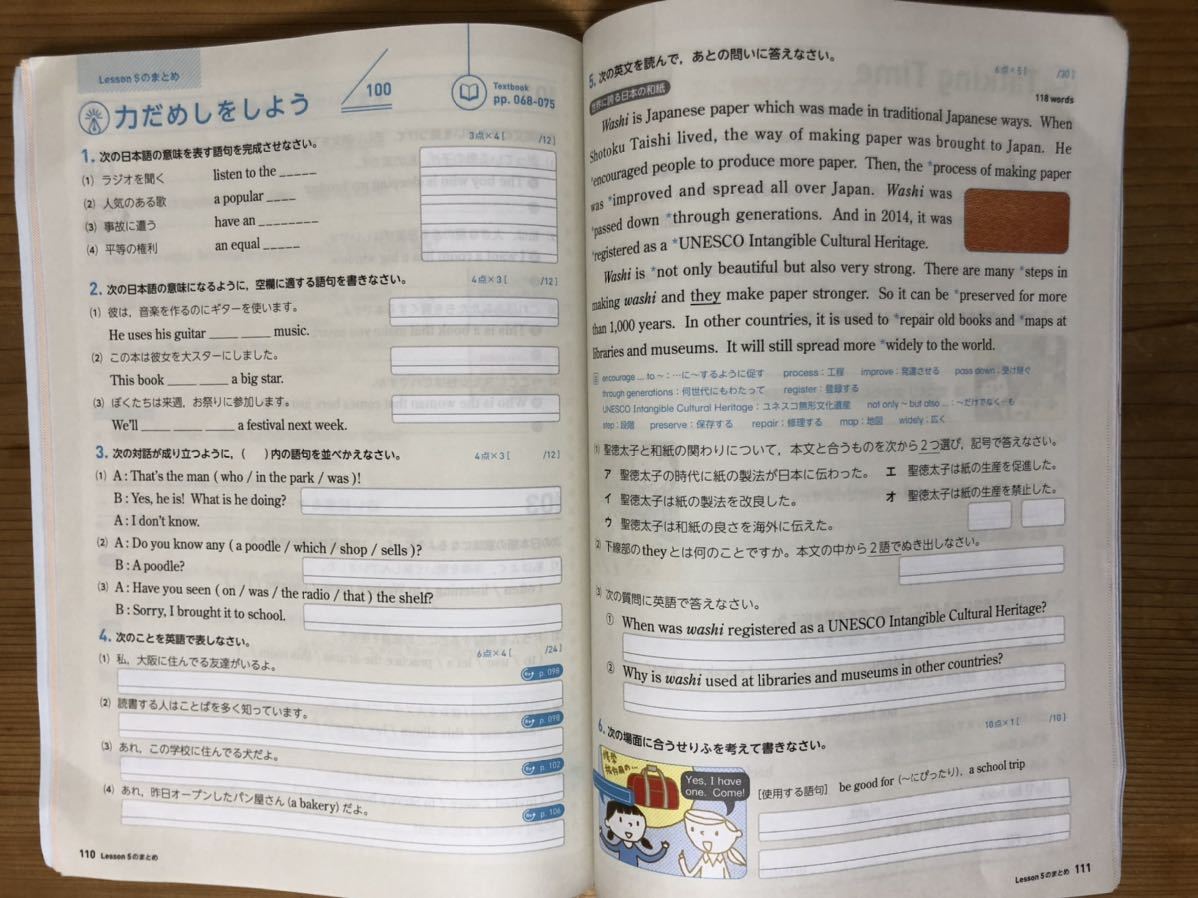 Lesson 5のまとめ
力だめしをしよう
100
Textbook
pp. 068-075
1. 次の日本語の意味を表す語句を完成させなさい。
3点×4[ /12]
(1) ラジオを聞く listen to the _____
(2) 人気のある歌 a popular ____
(3) 事故に遭う have an ________
(4) 平等の権利 an equal _____
2. 次の日本語の意味になるように，空欄に適する語句を書きなさい。
4点×3[ /12]
(1) 彼は，音楽を作るのにギターを使います。
He uses his guitar ____ _______ music.
(2) この本は彼女を大スターにしました。
This book ____ _____ a big star.
(3) ぼくたちは来週，お祭りに参加します。
We'll ______ ____ _____ a festival next week.
3. 次の対話が成り立つように，( )内の語句を並べかえなさい。
4点×3[ /12]
(1) A : That's the man ( who / in the park / was )!
B : Yes, he is! What is he doing?
A : I don't know.
(2) A : Do you know any ( a poodle / which / shop / sells )?
B : A poodle?
(3) A : Have you seen ( on / was / the radio / that ) the shelf?
B : Sorry, I brought it to school.
4. 次のことを英語で表しなさい。
6点×4[ /24]
(1) 私，大阪に住んでる友達がいるよ。
p. 098
(2) 読書する人はことばを多く知っています。
p. 098
(3) あれ，この学校に住んでる犬だよ。
p. 102
(4) あれ，昨日オープンしたパン屋さん(a bakery)だよ。
p. 106
110 Lesson 5のまとめ
5. 次の英文を読んで，あとの問いに答えなさい。
6点×5[ /30]
世界に誇る日本の和紙
118 words
Washi is Japanese paper which was made in traditional Japanese ways. When
Shotoku Taishi lived, the way of making paper was brought to Japan. He
*encouraged people to produce more paper. Then, the *process of making paper
was *improved and spread all over Japan. Washi was
*passed down *through generations. And in 2014, it was
*registered as a *UNESCO Intangible Cultural Heritage.
Washi is *not only beautiful but also very strong. There are many *steps in
making washi and they make paper stronger. So it can be *preserved for more
than 1,000 years. In other countries, it is used to *repair old books and *maps at
libraries and museums. It will still spread more *widely to the world.
注 encourage ... to ~ : …に~するように促す process : 工程 improve : 発達させる pass down : 受け継ぐ
through generations : 何世代にもわたって register : 登録する
UNESCO Intangible Cultural Heritage : ユネスコ無形文化遺産 not only ~ but also ... : ~だけでなく…も
step : 段階 preserve : 保存する repair : 修理する map : 地図 widely : 広く
(1) 聖徳太子と和紙の関わりについて，本文と合うものを次から2つ選び，記号で答えなさい。
ア 聖徳太子の時代に紙の製法が日本に伝わった。 エ 聖徳太子は紙の生産を促進した。
イ 聖徳太子は紙の製法を改良した。 オ 聖徳太子は紙の生産を禁止した。
ウ 聖徳太子は和紙の良さを海外に伝えた。
(2) 下線部のtheyとは何のことですか。本文の中から2語でぬき出しなさい。
(3) 次の質問に英語で答えなさい。
① When was washi registered as a UNESCO Intangible Cultural Heritage?
② Why is washi used at libraries and museums in other countries?
6. 次の場面に合うせりふを考えて書きなさい。
10点×1[ /10]
Yes, I have
one. Come!
[使用する語句] be good for (~にぴったり), a school trip
Lesson 5のまとめ 111